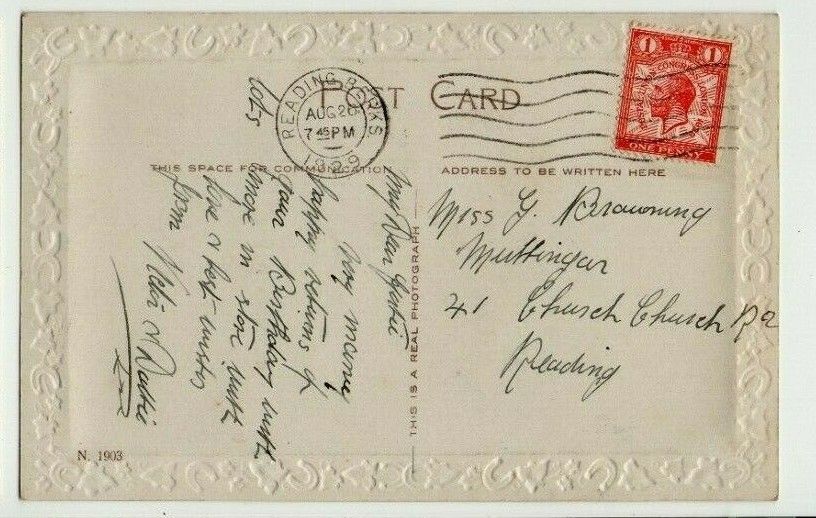 POST CARD
READING BERKS
AUG 26
7 45 PM
1929
1 1
POSTAL UNION CONGRESS LONDON
1929
ONE PENNY
THIS SPACE FOR COMMUNICATION
ADDRESS TO BE WRITTEN HERE
My Dear Gertie
very many
happy returns of
your Birthday with
lots more in store with
love & best wishes
from
THIS IS A REAL PHOTOGRAPH
Miss G. Browning
41 Church Church Rd
Reading
N. 1903